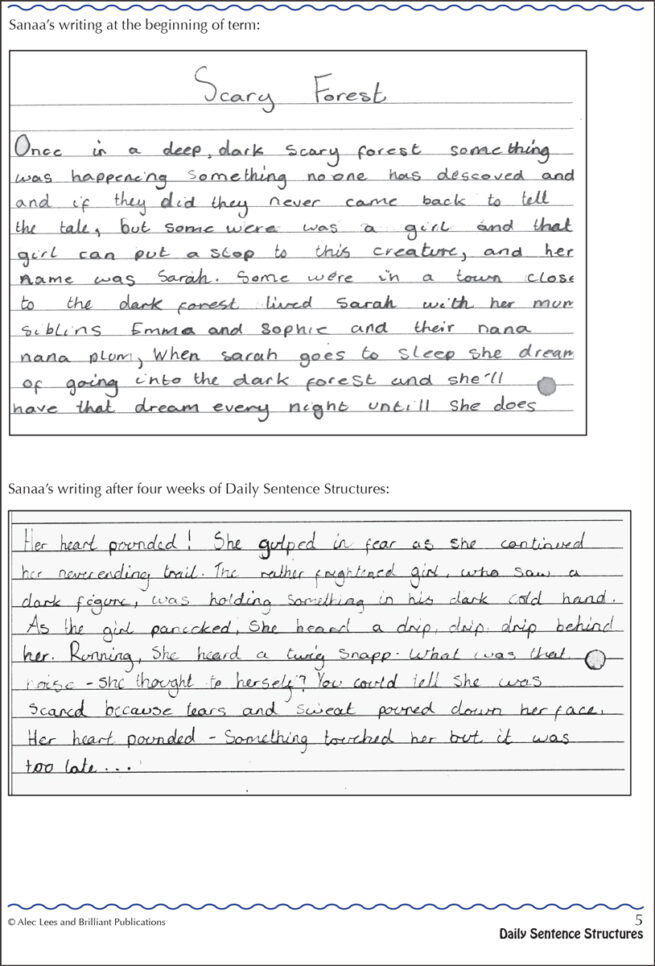 Sanaa's writing at the beginning of term:
Scary Forest
Once in a deep, dark scary forest something
was happening something no one has descoved and
and if they did they never came back to tell
the tale, but some were was a girl and that
girl can put a stop to this creature, and her
name was Sarah. Some were in a town close
to the dark forest lived Sarah with her mum
siblins Emma and Sophie and their nana
nana plum, When sarah goes to sleep she dream
of going into the dark forest and she'll
have that dream every night untill she does
Sanaa's writing after four weeks of Daily Sentence Structures:
Her heart pounded! She gulped in fear as she continued
her neverending trail. The rather frightened girl, who saw a
dark figure, was holding something in his dark cold hand.
As the girl panicked, She heard a drip, drip, drip behind
her. Running, She heard a twig snapp. What was that
noise - she thought to herself? You could tell she was
scared because tears and sweat poured down her face.
Her heart pounded - Something touched her but it was
too late...
© Alec Lees and Brilliant Publications
5
Daily Sentence Structures